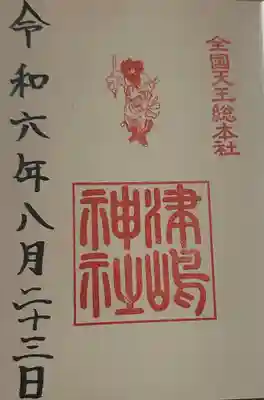 全國天王総本社
津嶋
神社
令和六年八月二十三日